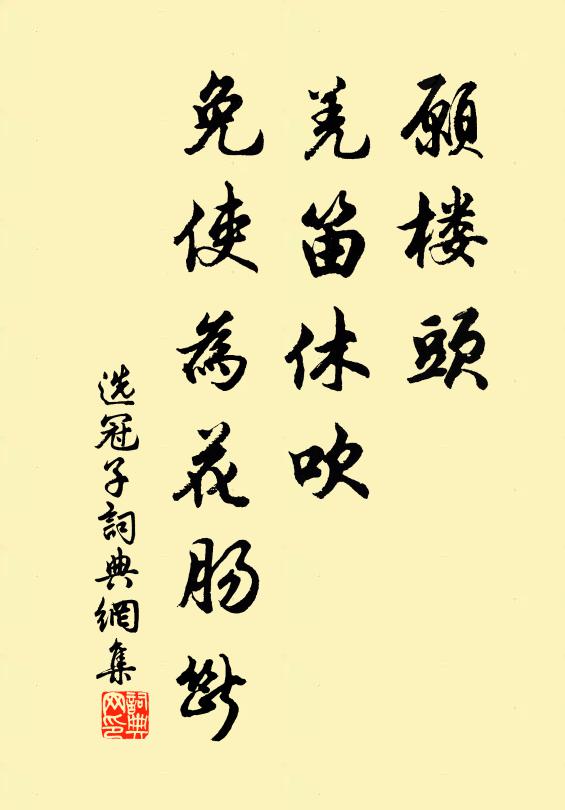 願楼頭
羌笛休吹
免使為花肠斷
选冠子詞典網集
詞典网印